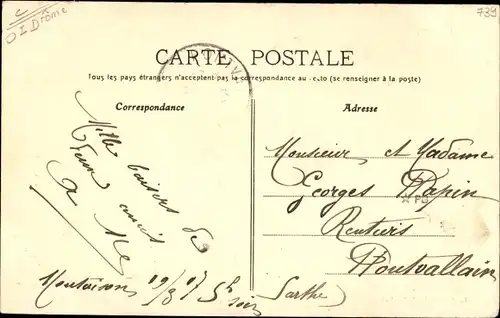 O I Drôme
739
CARTE POSTALE
Tous les pays étrangers n'acceptent pas la correspondance au recto (se renseigner à la poste)
Correspondance
Adresse
Mille baisers de
vieux amis
Monsieur et Madame
Georges Papin
Rentiers
Pontvallain
Sarthe
Montoison 19/8 07 5h
soir